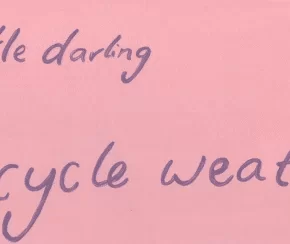 tle darling
cycle weat